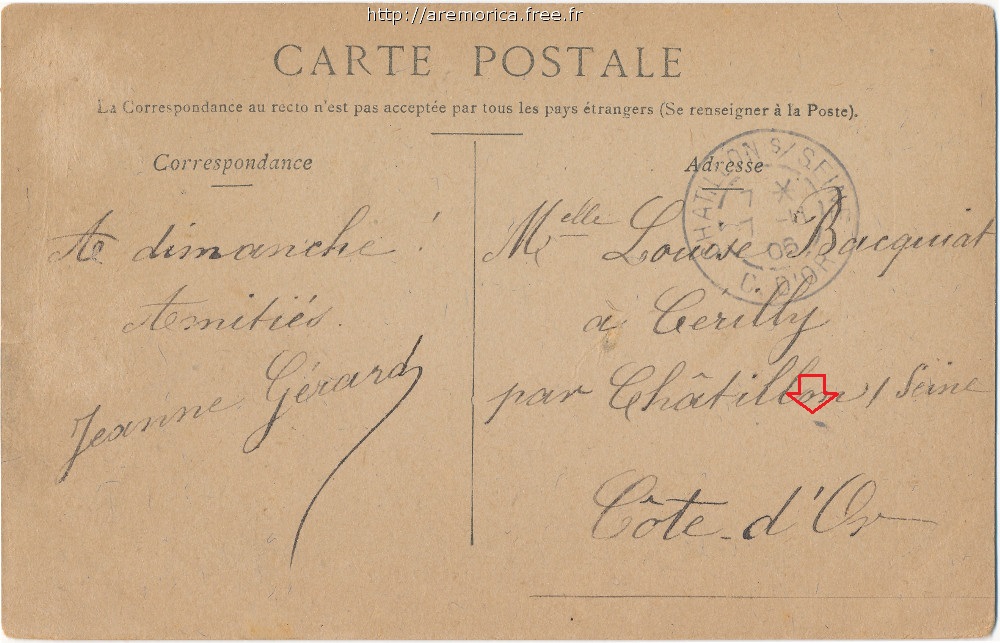 http://aremorica.free.fr
CARTE POSTALE
La Correspondance au recto n'est pas acceptée par tous les pays étrangers (Se renseigner à la Poste).
Correspondance
A dimanche !
Amitiés.
Jeanne Gérard
Adresse
CHATILLON s/ SEINE
05
C. D'OR
Melle Louise Bacquiat
à Cérilly
par Châtillon / Seine
Côte-d'Or